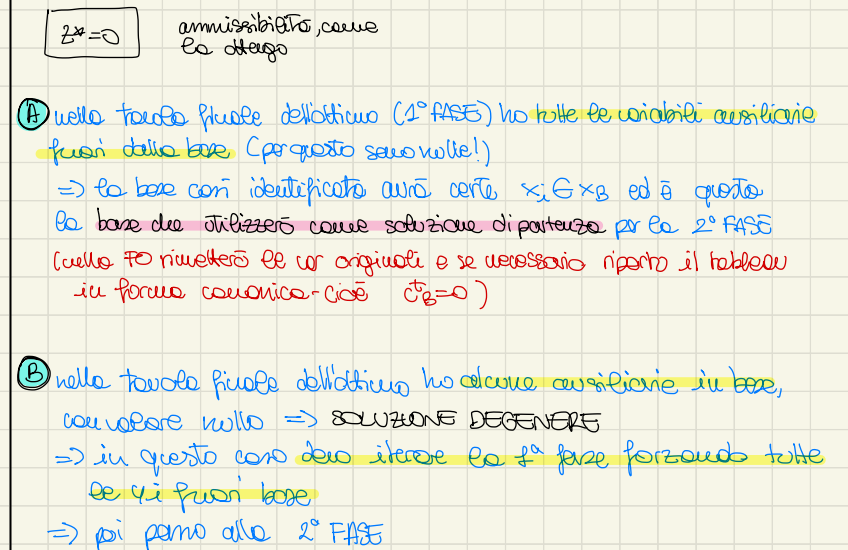 z*=0
ammissibilità, come
la ottengo
A nella tavola finale dell'ottimo (1° FASE) ho tutte le variabili ausiliarie
fuori dalla base (per questo sono nulle!)
=> la base così identificata avrà certe xi ∈ xB ed è questa
la base che utilizzerò come soluzione di partenza per la 2° FASE
(nella FO rimetterò le var originali e se necessario riporto il tableau
in forma canonica - cioè c̄ᵗB=0)
B nella tavola finale dell'ottimo ho alcune ausiliarie in base,
con valore nullo => SOLUZIONE DEGENERE
=> in questo caso devo iterare la 1ª fase forzando tutte
le yi fuori base
=> poi passo alla 2° FASE